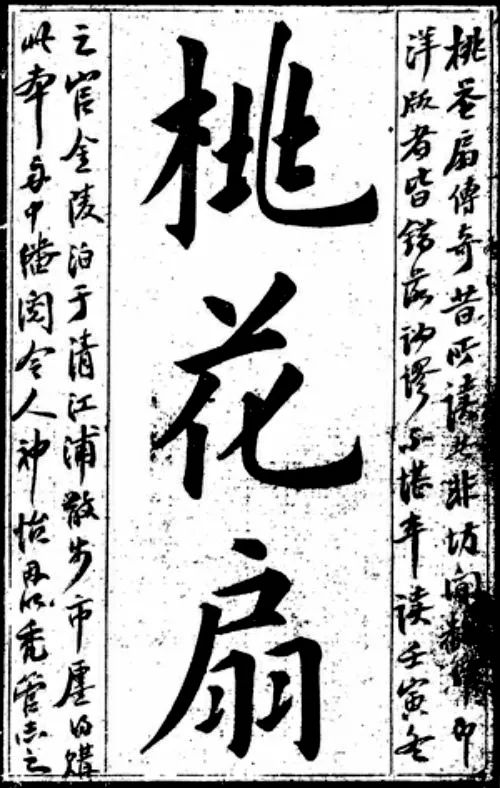 桃花扇傳奇昔所讀非坊間本即
洋版者皆錯落訛謬不堪卒讀壬寅冬
桃花扇
之官金陵泊于清江浦散步市廛購
此本舟中繙閱令人神怡以禿管志之